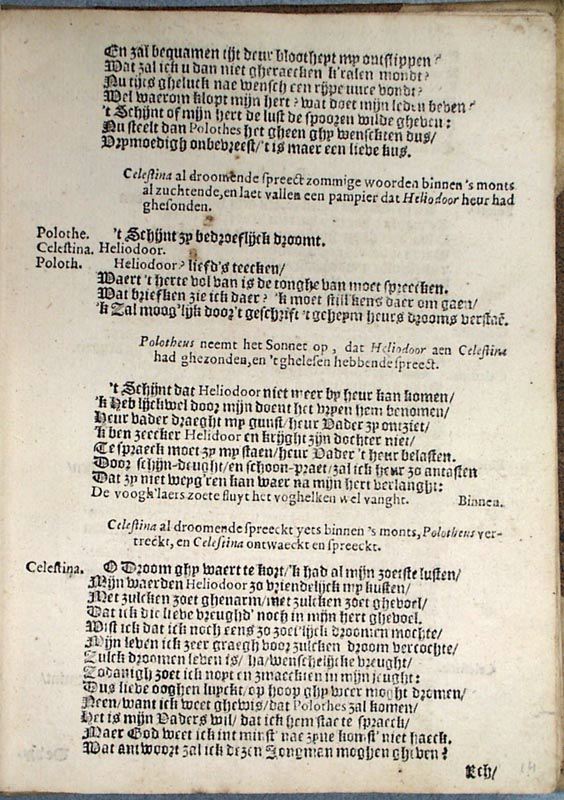 En zal bequamen tijt deur blootheyt my ontslippen?
Wat zal ick u dan niet gheraecken k'ralen mondt?
Nu tijts gheluck nae wensch een rijpe uure vondt?
Wel waerom klopt mijn hert? wat doet mijn leden beven?
't Schijnt of mijn hert de lust de spooren wilde gheven:
Nu steelt dan Polothes het gheen ghy wenschten dus/
Vrymoedigh onbevreest/ 't is maer een lieve kus.
Celestina al droomende spreect zommige woorden binnen 's monts
al zuchtende, en laet vallen een pampier dat Heliodoor heur had
ghesonden.
Polothe. 't Schijnt zy bedroeflijck droomt.
Celestina. Heliodoor.
Poloth. Heliodoor? liefd's teecken/
Waert 't herte vol van is de tonghe van moet spreecken.
Wat briefken zie ick daer? 'k moet stillkens daer om gaen/
'k Zal moog'lijk door't geschrift 't geheym heurs drooms verstaē.
Polotheus neemt het Sonnet op, dat Heliodoor aen Celestina
had ghezonden, en 't ghelesen hebbende spreect.
't Schijnt dat Heliodoor niet meer by heur kan komen/
'k Heb lijckwel door mijn doent het vryen hem benomen/
Heur vader draeght my gunst/ heur Vader zy ontziet/
'k ben zeecker Helidoor en krijght zijn dochter niet/
Te spraeck moet zy my staen/ heur Vader 't heur belasten.
Door schijn-deught/ en schoon-praet/ zal ick heur zo antasten
Dat zy niet weyg'ren kan waer na mijn hert verlanght:
De voogk'laers zoete fluyt het voghelken wel vanght. Binnen.
Celestina al droomende spreeckt yets binnen 's monts, Polotheus ver-
treckt, en Celestina ontwaeckt en spreeckt.
Celestina. O Droom ghy waert te kort/ 'k had al mijn zoetste lusten/
Mijn waerden Heliodoor zo vriendelijck my kusten/
Met zulcken zoet ghenarm/ met zulcken zoet ghevoel/
Dat ick die lieve vreughd' noch in mijn hert ghevoel.
Wist ick dat ick noch eens zo zoet'lijck droomen mochte/
Mijn leven ick zeer graegh voor zulcken droom vercochte/
Zulck droomen leven is/ ha/ wenschelijcke vreught/
Zodanigh zoet ick noyt en smaeckten in mijn jeught:
Dus lieve ooghen luyckt/ op hoop ghy weer moght dromen/
Neen/ want ick weet ghewis/ dat Polothes zal komen/
Het is mijn Vaders wil/ dat ick hem stae te spraeck/
Maer God weet ick int minst' nae zyne komst' niet haeck.
Wat antwoort zal ick dezen Jongman moghen gheven?
Ach/
14